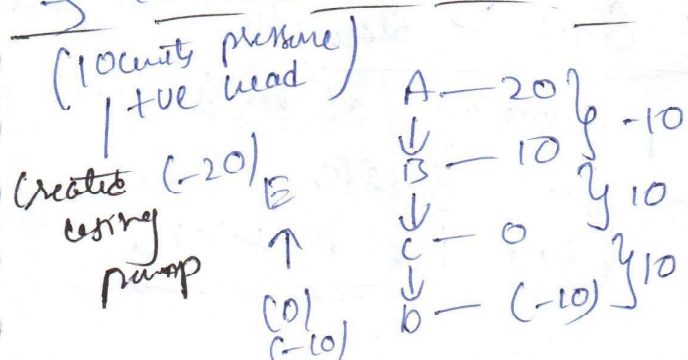 (10 units pressure
+ve head)
Created
using
pump
(-20)
E
↑
(D)
(-10)
A — 20
} -10
↓
B — 10
} 10
↓
C — 0
} 10
↓
D — (-10)